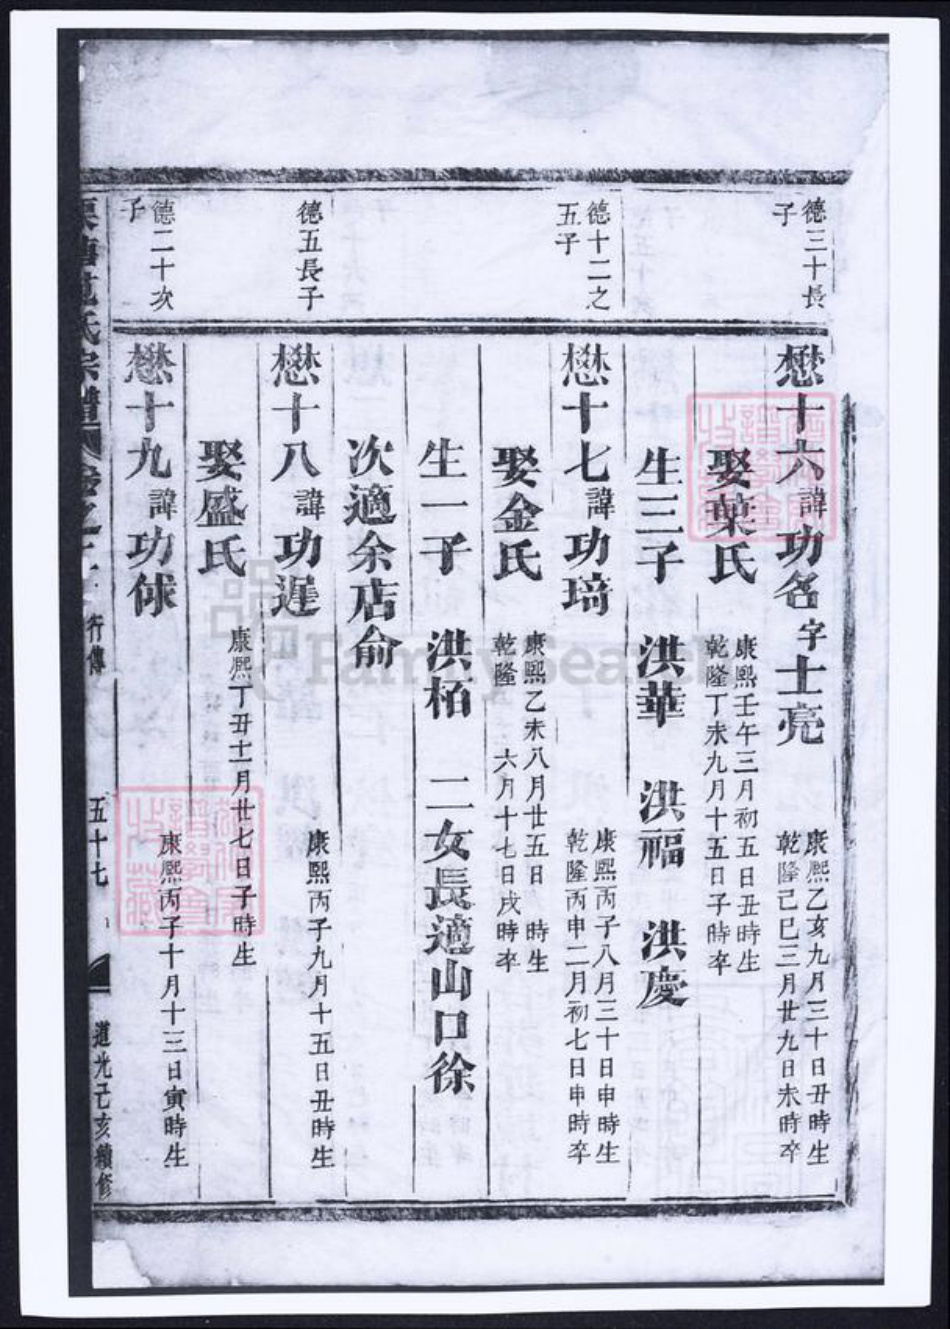 德三十長
子
懋十六諱功名字士亮
康熙乙亥九月三十日丑時生
乾隆己巳三月廿九日未時卒
娶葉氏
康熙壬午三月初五日丑時生
乾隆丁未九月十五日子時卒
生三子 洪華 洪福 洪慶
德十二之
五子
懋十七諱功琦
康熙丙子八月三十日申時生
乾隆丙申二月初七日申時卒
娶金氏
康熙乙未八月廿五日 時生
乾隆 六月十七日戌時卒
生一子 洪柏 二女長適山口徐
次適余店俞
德五長子
懋十八諱功遅
康熙丙子九月十五日丑時生
娶盛氏
康熙丁丑十一月廿七日子時生
德二十次
子
懋十九諱功俅
康熙丙子十月十三日寅時生
氏宗譜 卷之十 行傳 五十七 道光己亥續修
FamilySearch